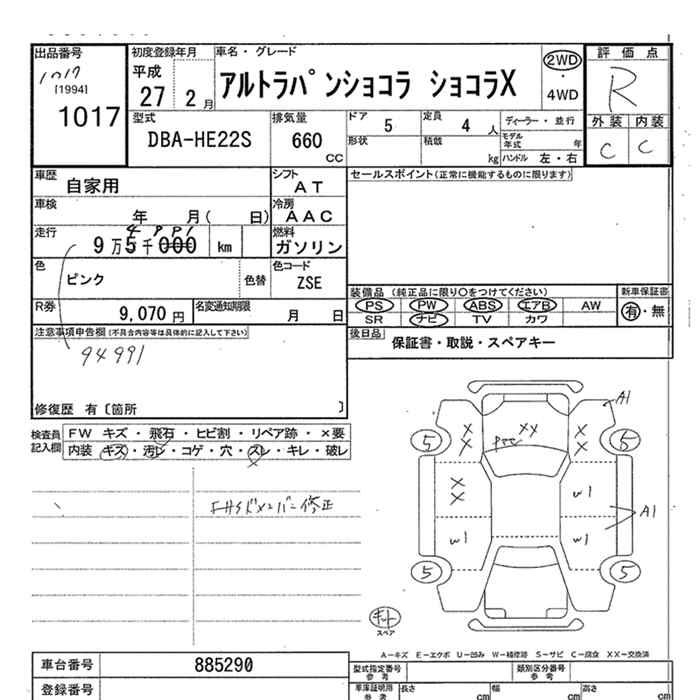 出品番号 初度登録年月 車名・グレード 評価点
1017
[1994]
1017
平成
27 2月
アルトラパンショコラ ショコラX
2WD
・
4WD
R
外装 内装
C C
型式 DBA-HE22S
排気量 660 CC
ドア 5
定員 4人
ディーラー・並行
形状 積載 kg
モデル年式 年
ハンドル 左・右
車歴 自家用
シフト AT
セールスポイント(正常に機能するものに限ります)
車検 年 月( 日)
冷房 AAC
走行 9万5千000 km
燃料 ガソリン
色 ピンク 色替
色コード ZSE
装備品 (純正品に限り○をつけてください)
新車保証書
PS PW ABS エアB AW
有・無
SR ナビ TV カワ
R券 9,070円
名変通知期限 月 日
後日品 保証書・取説・スペアキー
注意事項申告欄(不具合内容等は具体的に記入して下さい)
94991
修復歴 有〔箇所 〕
検査員記入欄
FW キズ・飛石・ヒビ割・リペア跡・×要
内装 キズ・汚レ・コゲ・穴・スレ・キレ・破レ
A1
XX
X
X
X
X
5 5
X
X
W1
A1
W1 W1
5 5
キット
スペア
A-キズ E-エクボ U-凹み W-補修跡 S-サビ C-腐食 XX-交換済
車台番号 885290
登録番号
型式指定番号 参考
類別区分番号 参考
車庫証明用 参考
長さ cm 幅 cm 高さ cm